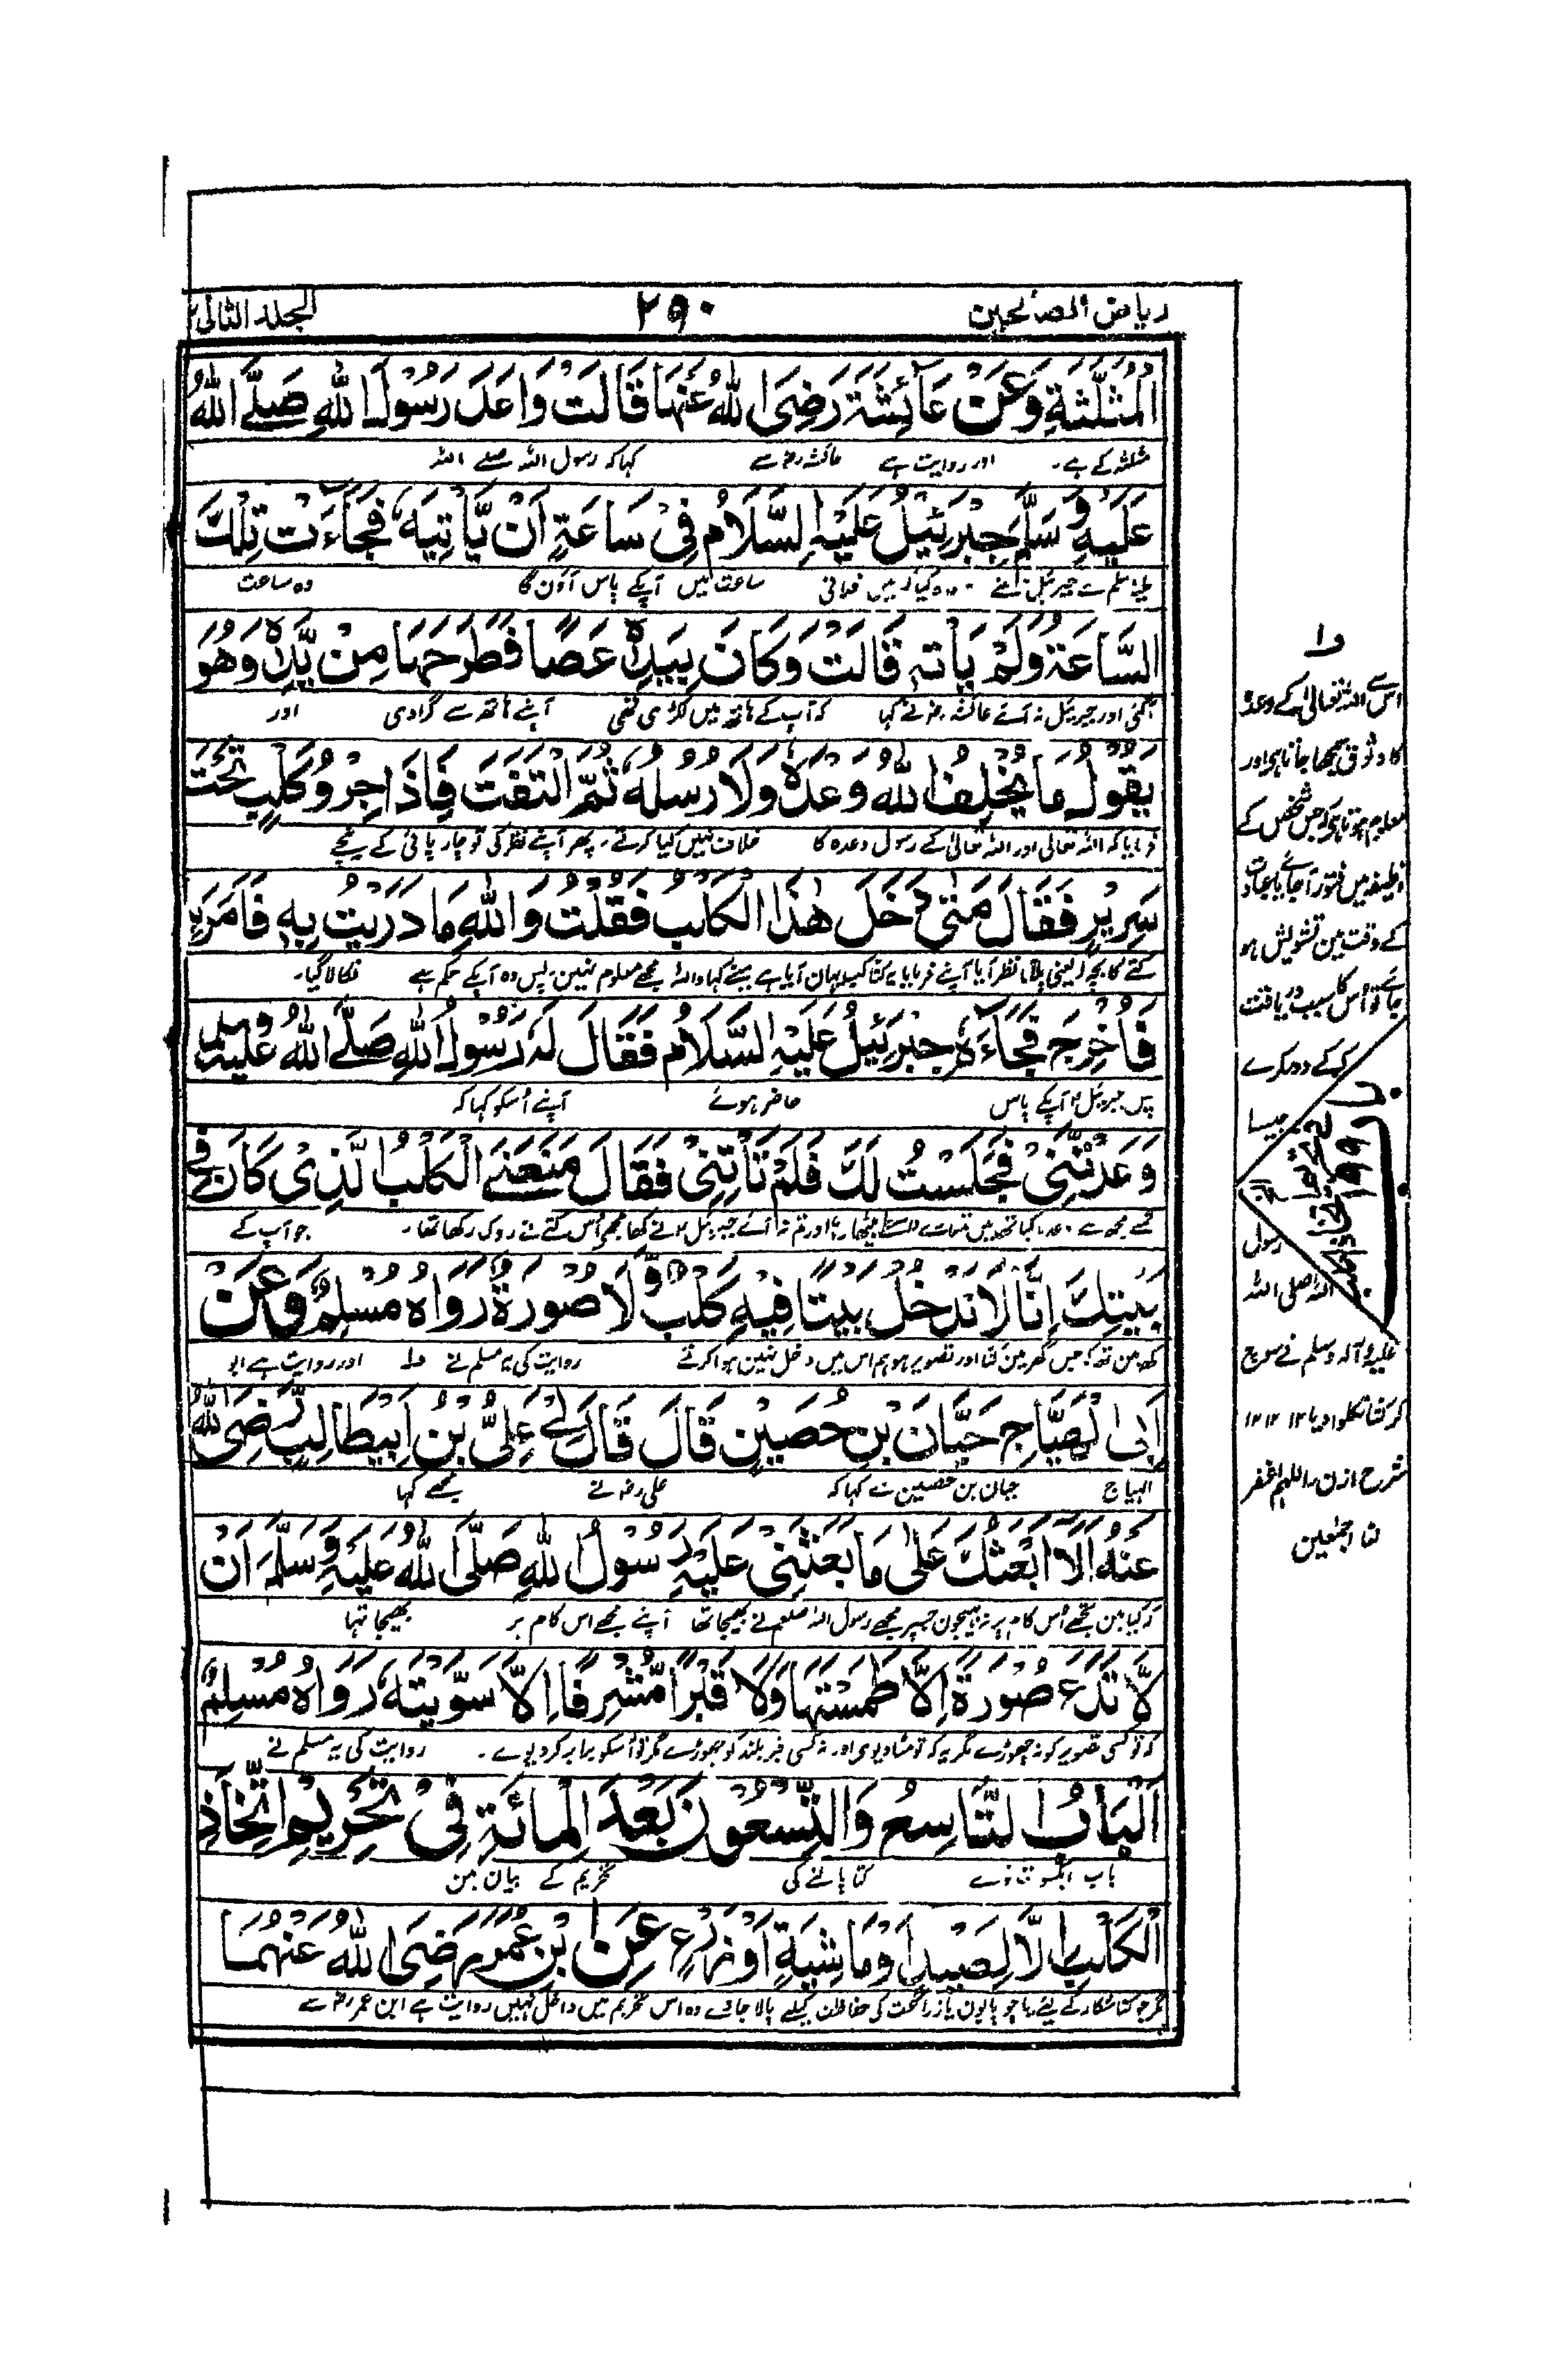 رياض الصالحين
٢٥٠
الجلد الثانی
الْمُثَلَّثَةِ وَعَنْ عَآئِشَةَ رَضِیَ اللّٰهُ عَنْهَا قَالَتْ وَاعَدَ رَسُوْلَ اللّٰهِ صَلَّے اللّٰهُ
مثلثہ کے ہے۔ اور روایت ہے عائشہ رضہ سے کہا کہ رسول اللہ صلے اللہ
عَلَيْهِ وَسَلَّمَ جِبْرَئِيْلُ عَلَيْهِ السَّلَامُ فِیْ سَاعَةٍ اَنْ يَّاْتِيَهٗ فَجَآءَتْ تِلْكَ
ساعت میں آپکے پاس آؤں گا وہ ساعت
السَّاعَةُ وَلَمْ يَاْتِهٖ قَالَتْ وَكَانَ بِيَدِهٖ عَصًا فَطَرَحَهَا مِنْ يَّدِهٖ وَهُوَ
آگئی اور جبرئیل نہ آئے عائشہ رضہ نے کہا کہ آپ کے ہاتھ میں لکڑی تھی آپنے ہاتھ سے گرادی اور
يَقُوْلُ مَا يُخْلِفُ اللّٰهُ وَعْدَهٗ وَلَا رُسُلُهٗ ثُمَّ الْتَفَتَ فَاِذَا جِرْوُ كَلْبٍ تَحْتَ
فرمایا کہ اللہ تعالی اور اللہ تعالیٰ کے رسول وعدہ کا خلاف نہیں کیا کرتے۔ پھر آپنے نظر کی تو چارپائی کے نیچے
سَرِيْرٍ فَقَالَ مَتٰی دَخَلَ هٰذَا الْكَلْبُ فَقُلْتُ وَاللّٰهِ مَا دَرَيْتُ بِهٖ فَاَمَرَ بِهٖ
کتے کا بچہ یعنی پلّا نظر آیا آپنے فرمایا یہ کتا کب یہاں آیا ہے مینے کہا واللہ مجھے معلوم نہین۔ پس وہ آپکے حکم سے نکالا گیا۔
فَاُخْرِجَ فَجَآءَهٗ جِبْرَئِيْلُ عَلَيْهِ السَّلَامُ فَقَالَ لَهٗ رَسُوْلُ اللّٰهِ صَلَّے اللّٰهُ عَلَيْهِ وَسَلَّمَ
پس جبرئیل آپکے پاس حاضر ہوئے آپنے اُسکو کہا کہ
وَعَدْتَّنِیْ فَجَلَسْتُ لَكَ فَلَمْ تَاْتِنِیْ فَقَالَ مَنَعَنِے الْكَلْبُ الَّذِیْ كَانَ فِیْ
بیٹھا رہا اور تم نہ آئے جبرئیل نے کہا مجھے اُس کتے نے روک رکھا تھا۔ جو آپ کے
بَيْتِكَ اِنَّا لَا نَدْخُلُ بَيْتًا فِيْهِ كَلْبٌ وَّلَا صُوْرَةٌ رَوَاهُ مُسْلِمٌ وَعَنْ
گھر مین تھا جس گھر مین کتا اور تصویر ہو ہم اس میں داخل نہین ہوا کرتے روایت کی یہ مسلم نے ف۱ اور روایت ہے ابو
اَبِی الْهَيَّاجِ حَيَّانَ بْنِ حُصَيْنٍ قَالَ قَالَ لِے عَلِیُّ بْنُ اَبِيْطَالِبٍ رَضِیَ اللّٰهُ
الہیاج حیان بن حصین سے کہا کہ علی رضہ نے مجھے کہا
عَنْهُ اَلَا اَبْعَثُكَ عَلٰی مَا بَعَثَنِیْ عَلَيْهِ رَسُوْلُ اللّٰهِ صَلَّی اللّٰهُ عَلَيْهِ وَسَلَّمَ اَنْ
کہ کیا مین تجھے اُس کام پر نہ بھیجون جسپر مجھے رسول اللہ صلعم نے بھیجا تھا آپنے مجھے اس کام پر بھیجا تھا
لَّا تَدَعَ صُوْرَةً اِلَّا طَمَسْتَهَا وَلَا قَبْرًا مُّشْرِفًا اِلَّا سَوَّيْتَهٗ رَوَاهُ مُسْلِمٌ
کہ تو کسی تصویر کو نہ چھوڑے مگر یہ کہ تو مٹادیوی اور نہ کسی قبر بلند کو چھوڑے مگر تو اُسکو برابر کر دیوے۔ روایت کی یہ مسلم نے
اَلْبَابُ التَّاسِعُ وَالتِّسْعُوْنَ بَعْدَ الْمِائَةِ فِیْ تَحْرِيْمِ اتِّخَاذِ
باب کتا پالنے کی تحریم کے بیان مین
الْكَلْبِ اِلَّا لِصَيْدٍ اَوْ مَاشِيَةٍ اَوْ زَرْعٍ عَنِ ابْنِ عُمَرَ رَضِیَ اللّٰهُ عَنْهُمَا
مگر جو کتا شکار کے لیئے یا چوپایون یا زراعت کی حفاظت کیلئے پالا جاوے وہ اس تحریم میں داخل نہیں روایت ہے ابن عمر رضہ سے
ف۱
اس سے اللہ تعالیٰ کے وعدہ
کا وثوق سمجھا جاتا ہے اور
معلوم ہوتا ہے کہ جس شخص کے
وظیفہ میں فتور آجائے یا عبادت
کے وقت مین تشویش ہو
جائے تو اُس کا سبب دریافت
کر کے دور کرے
جیسا
رسول
اللہ صلی اللہ
علیہ وآلہ وسلم نے سوچ
کر کتا نکلوا دیا ١٢ ١٢ ١٢
شرح ازن۔ اللہم اغفر
لنا اجمعین